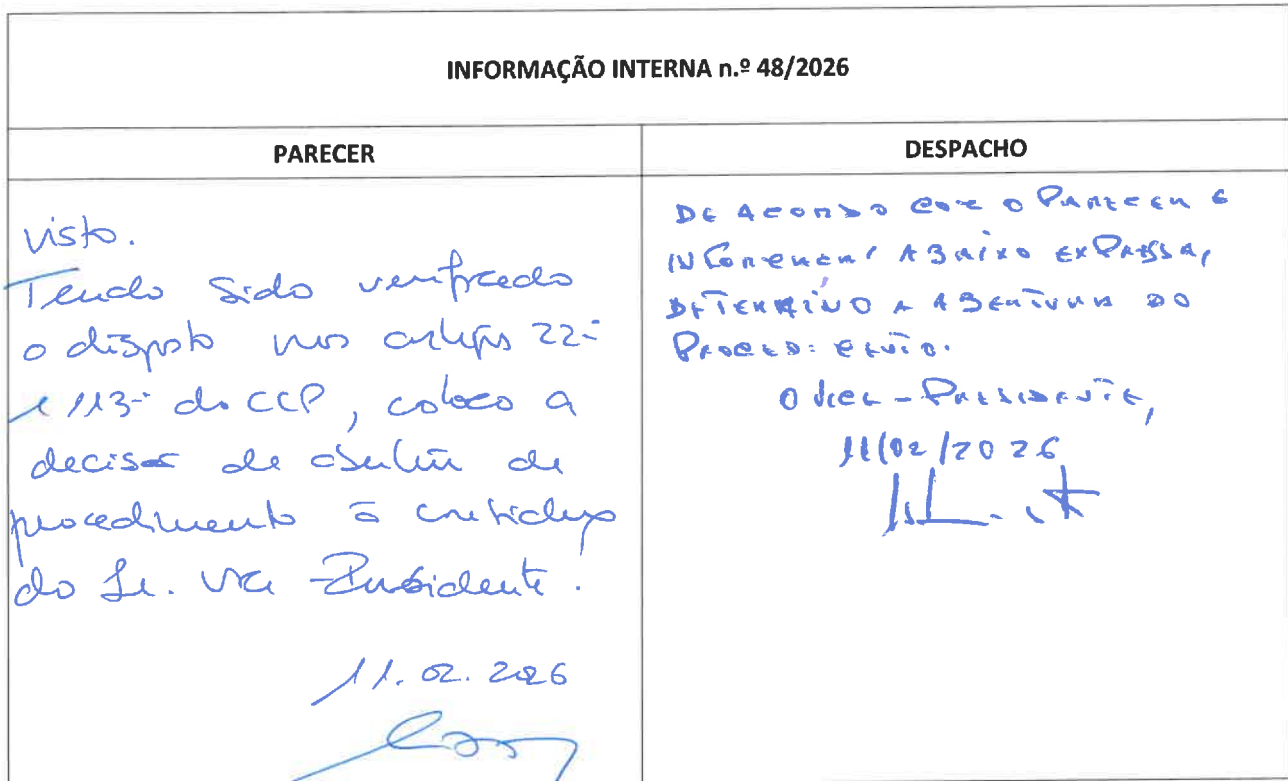 INFORMAÇÃO INTERNA n.º 48/2026
PARECER
visto.
Tendo sido verificado
o disposto nos artigos 22º
e 113º do CCP, coloco a
decisão de abertura de
procedimento à consideração
do Sr. Vice-Presidente.
11.02.2026
DESPACHO
DE ACORDO COM O PARECER E
INFORMAÇÃO ABAIXO EXPRESSA,
DETERMINO A ABERTURA DO
O VICE-PRESIDENTE,
11/02/2026